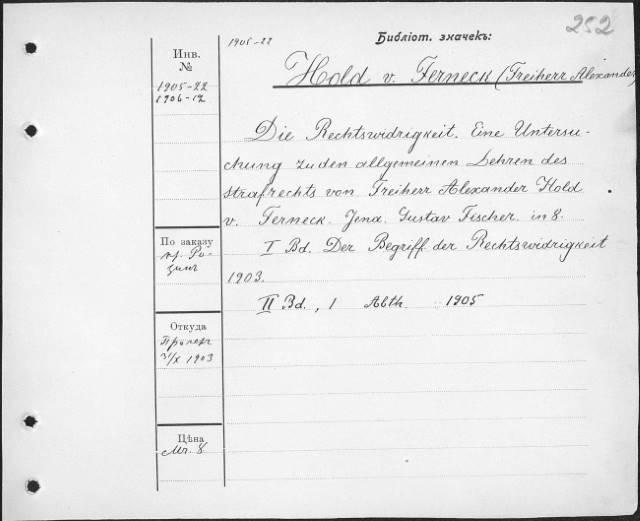 252
1905-22 Библіот. значекъ:
Hold v. Ferneck (Freiherr Alexander)
Инв.
№
1905-22
1906-12
Die Rechtswidrigkeit. Eine Untersu-
chung zu den allgemeinen Lehren des
Strafrechts von Freiherr Alexander Hold
v. Ferneck. Jena. Gustav Fischer. in 8.
I Bd. Der Begriff der Rechtswidrigkeit
1903.
II Bd., 1 Abth. 1905
По заказу
пр.
Откуда
X 1903
Цѣна
Mr. 8